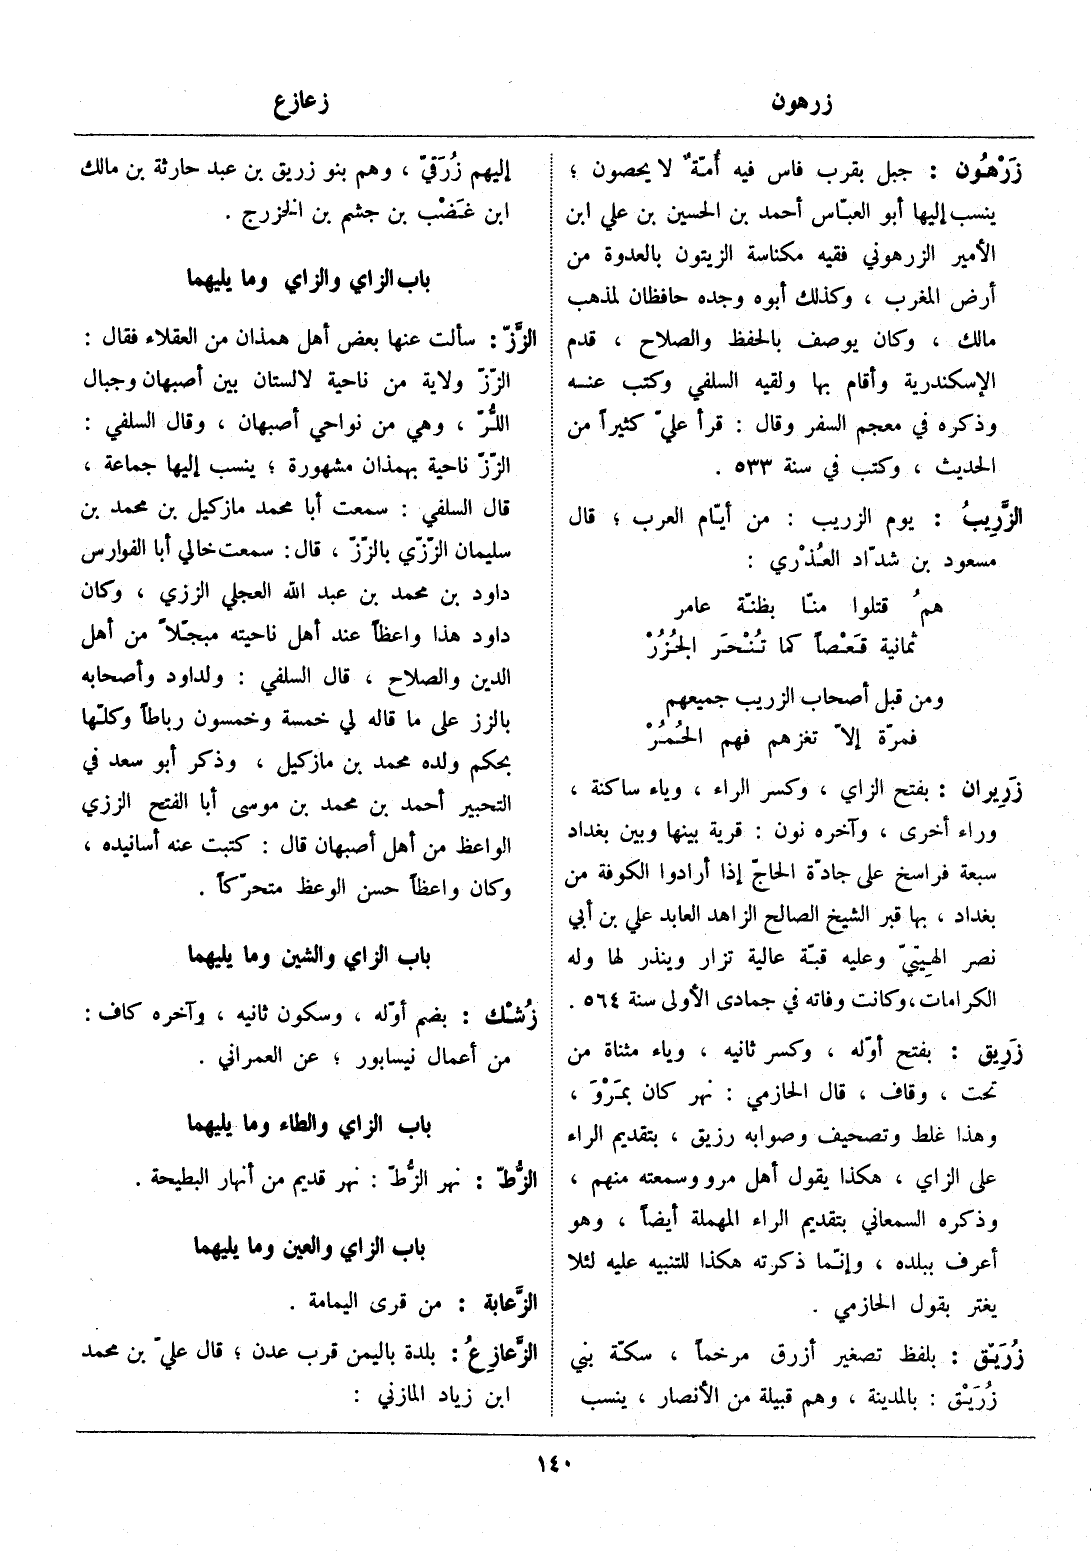 زرهون
زعازع
زَرْهُون : جبل بقرب فاس فيه أُمّةٌ لا يحصون ؛
ينسب إليها أبو العبّاس أحمد بن الحسين بن علي ابن
الأمير الزرهوني فقيه مكناسة الزيتون بالعدوة من
أرض المغرب ، وكذلك أبوه وجده حافظان لمذهب
مالك ، وكان يوصف بالحفظ والصلاح ، قدم
الإسكندرية وأقام بها ولقيه السلفي وكتب عنه
وذكره في معجم السفر وقال : قرأ عليّ كثيراً من
الحديث ، وكتب في سنة ٥٣٣ .
الزَّرِيبُ : يوم الزريب : من أيّام العرب ؛ قال
مسعود بن شدّاد العُذْري :
همُ قتلوا منّا بظنّة عامر
ثمانية قَعْصاً كما تُنْحَر الجُزُرْ
ومن قبل أصحاب الزريب جميعهم
فمرّة إلاّ تغزهم فهم الحُمُرْ
زَرِيران : بفتح الزاي ، وكسر الراء ، وياء ساكنة ،
وراء أخرى ، وآخره نون : قرية بينها وبين بغداد
سبعة فراسخ على جادّة الحاجّ إذا أرادوا الكوفة من
بغداد ، بها قبر الشيخ الصالح الزاهد العابد علي بن أبي
نصر الهِيْتيّ وعليه قبّة عالية تزار وينذر لها وله
الكرامات،وكانت وفاته في جمادى الأولى سنة ٥٦٤ .
زَرِيق : بفتح أوّله ، وكسر ثانيه ، وياء مثناة من
تحت ، وقاف ، قال الحازمي : نهر كان بمَرْوَ ،
وهذا غلط وتصحيف وصوابه رزيق ، بتقديم الراء
على الزاي ، هكذا يقول أهل مرو وسمعته منهم ،
وذكره السمعاني بتقديم الراء المهملة أيضاً ، وهو
أعرف ببلده ، وإنّما ذكرته هكذا للتنبيه عليه لئلا
يغتر بقول الحازمي .
زُرَيق : بلفظ تصغير أزرق مرخماً ، سكّة بني
زُرَيْق : بالمدينة ، وهم قبيلة من الأنصار ، ينسب
إليهم زُرَقيّ ، وهم بنو زريق بن عبد حارثة بن مالك
ابن غَضْب بن جشم بن الخزرج .
باب الزاي والزاي وما يليهما
الزَّزّ : سألت عنها بعض أهل همذان من العقلاء فقال :
الزّزّ ولاية من ناحية لالستان بين أصبهان وجبال
اللُّرّ ، وهي من نواحي أصبهان ، وقال السلفي :
الزّزّ ناحية بهمذان مشهورة ؛ ينسب إليها جماعة ،
قال السلفي : سمعت أبا محمد مازكيل بن محمد بن
سليمان الزّزّي بالزّزّ ، قال : سمعت خالي أبا الفوارس
داود بن محمد بن عبد الله العجلي الززي ، وكان
داود هذا واعظاً عند أهل ناحيته مبجّلاً من أهل
الدين والصلاح ، قال السلفي : ولداود وأصحابه
بالزز على ما قاله لي خمسة وخمسون رباطاً وكلّها
بحكم ولده محمد بن مازكيل ، وذكر أبو سعد في
التحبير أحمد بن محمد بن موسى أبا الفتح الززي
الواعظ من أهل أصبهان قال : كتبت عنه أسانيده ،
وكان واعظاً حسن الوعظ متحرّكاً .
باب الزاي والشين وما يليهما
زُشْك : بضم أوّله ، وسكون ثانيه ، وآخره كاف :
من أعمال نيسابور ؛ عن العمراني .
باب الزاي والطاء وما يليهما
الزُّطّ : نهر الزُّطّ : نهر قديم من أنهار البطيحة .
باب الزاي والعين وما يليهما
الزَّعابة : من قرى اليمامة .
الزَّعازِعُ : بلدة باليمن قرب عدن ؛ قال عليّ بن محمد
ابن زياد المازني :
١٤٠